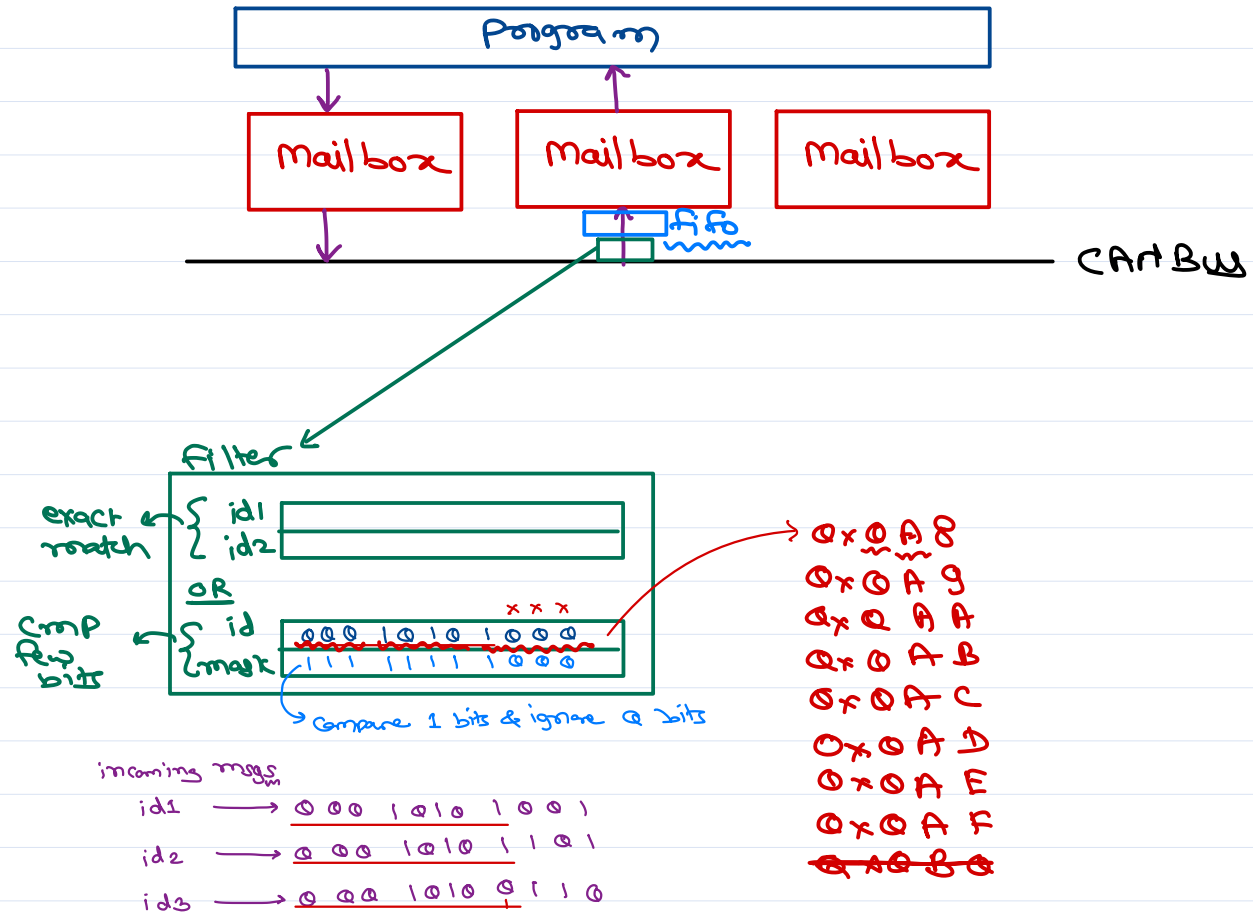 Program
Mailbox Mailbox Mailbox
fifo
CAN Bus
Filter
exact match { id1
id2
OR
x x x
cmp few bits { id 000 1010 1000
mask 111 1111 1000
compare 1 bits & ignore 0 bits
incoming msgs
id1 → 000 1010 1001
id2 → 000 1010 1101
id3 → 000 1010 0110
1
0x0A8
0x0A9
0x0AA
0x0AB
0x0AC
0x0AD
0x0AE
0x0AF
0x0B0